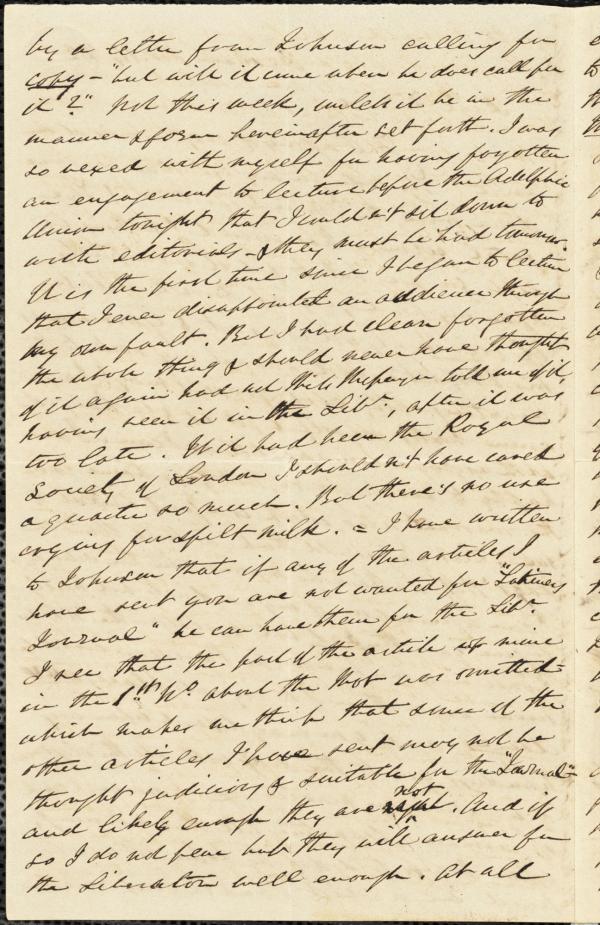 by a letter from Johnson calling for
copy – "but will it come when he does call for
it?" Not this week, unless it be in the
manner & form hereinafter set forth. I was
so vexed with myself for having forgotten
an engagement to lecture before the Adelphic
Union tonight that I couldn't sit down to
write editorials – & they must be had tomorrow.
It is the first time since I began to lecture
that I ever disappointed an audience through
my own fault. But I had clean forgotten
the whole thing & should never have thought
of it again had not Miss told me of it,
having seen it in the Libr., after it was
too late. If it had been the Royal
Society of London I shouldn't have cared
a quarter so much. But there's no use
crying for spilt milk. = I have written
to Johnson that if any of the articles I
have sent you are not wanted for "Latimer's
Journal" he can have them for the Libr.
I see that the part of the article of mine
in the 1st No. about the Mob was omitted =
which makes me think that some of the
other articles I have sent may not be
thought judicious & suitable for the "Journal" =
and likely enough they are not. And if
so I do not fear but they will answer for
the Liberator well enough. At all